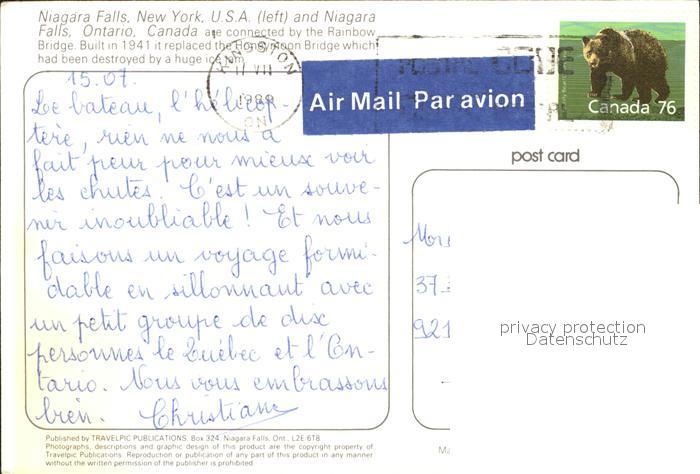 Niagara Falls, New York, U.S.A. (left) and Niagara
Falls, Ontario, Canada are connected by the Rainbow
Bridge. Built in 1941 it replaced the Honeymoon Bridge which
had been destroyed by a huge ice jam.
KINGSTON
VII
1989
ON
POSTAL CODE
Air Mail Par avion
Canada 76
post card
15.07.
Le bateau, l'hélicop-
tère, rien ne nous a
fait peur pour mieux voir
les chutes. C'est un souve-
nir inoubliable ! Et nous
faisons un voyage formi-
dable en sillonnant avec
un petit groupe de dix
personnes le Québec et l'On-
tario. Nous vous embrassons
bien. Christiane
37
921
privacy protection
Datenschutz
Published by TRAVELPIC PUBLICATIONS. Box 324, Niagara Falls, Ont., L2E 6T8
Photographs, descriptions and graphic design of this product are the copyright property of
Travelpic Publications. Reproduction or publication of any part of this product in any manner
without the written permission of the publisher is prohibited
Ma